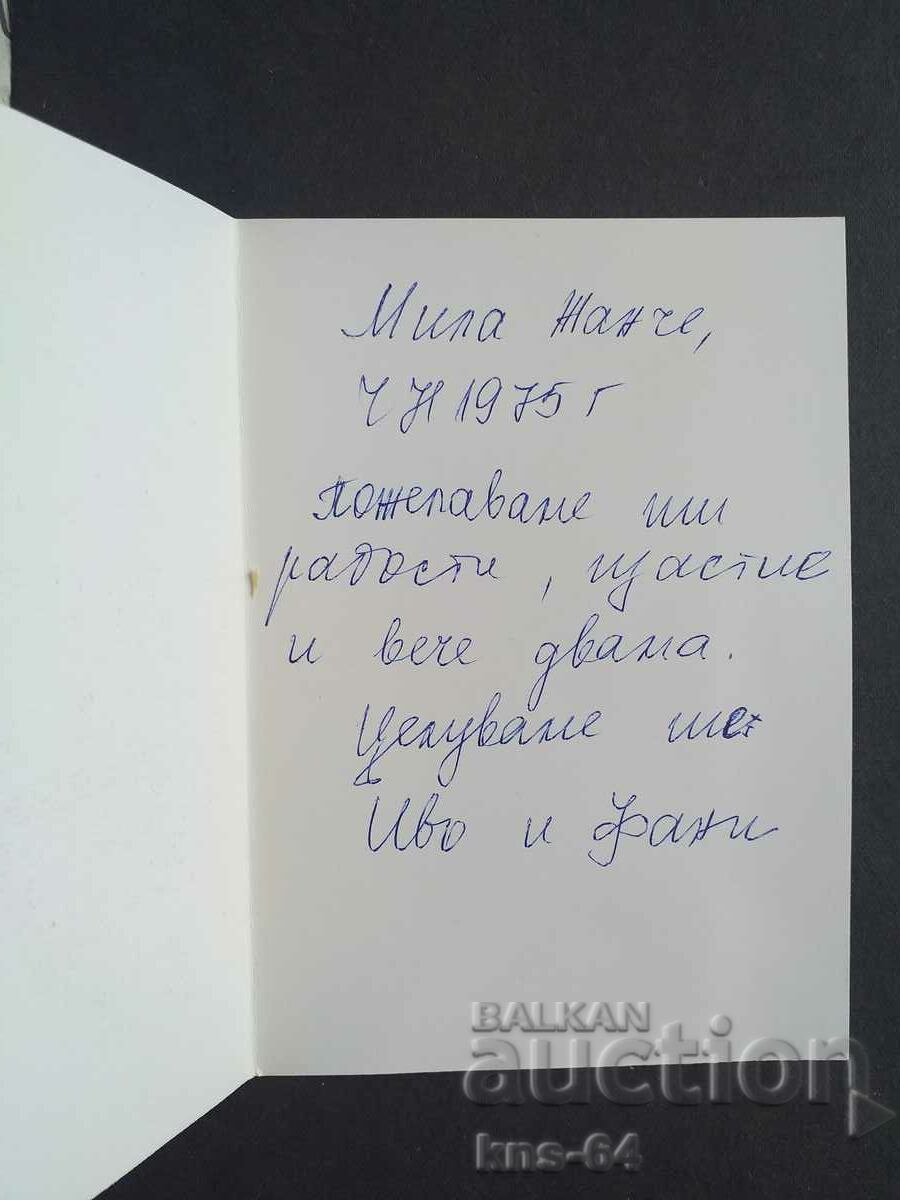 Мила Жанче,
ЧН 1975 г
Пожелаваме ти
радости, щастие
и вече двама.
Целуваме те
Иво и Фани
BALKAN
auction
kns-64